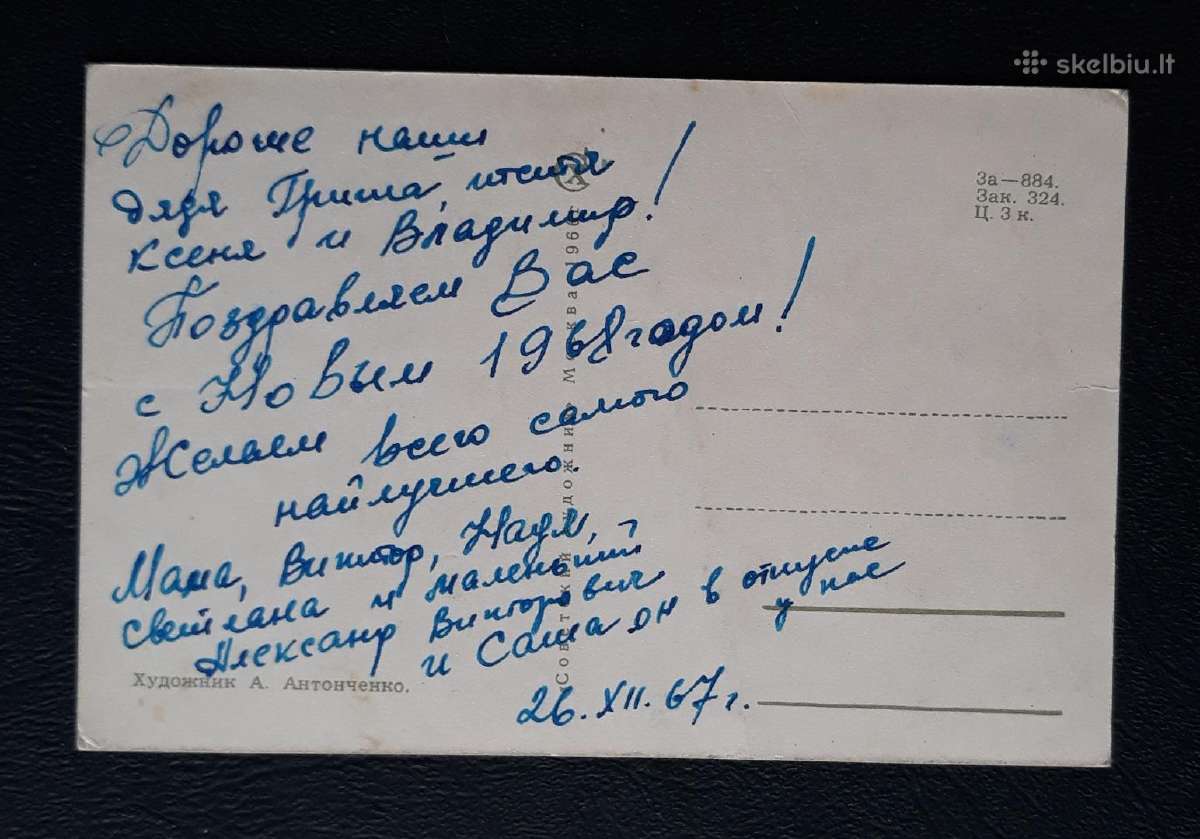 skelbiu.lt
Дороже наши
дядя Гриша, итётя
Ксеня и Владимир!
Поздравляем Вас
с Новым 1968 годом!
Желаем всего самого
найлучшего.
Мама, Виктор, Наум,
Светлана и маленький
Александр Викторович
и Саша он в отпуске
у нас
26. XII. 67 г.
За—884.
Зак. 324.
Ц. 3 к.
Советский художник Москва 196
Художник А. Антонченко.